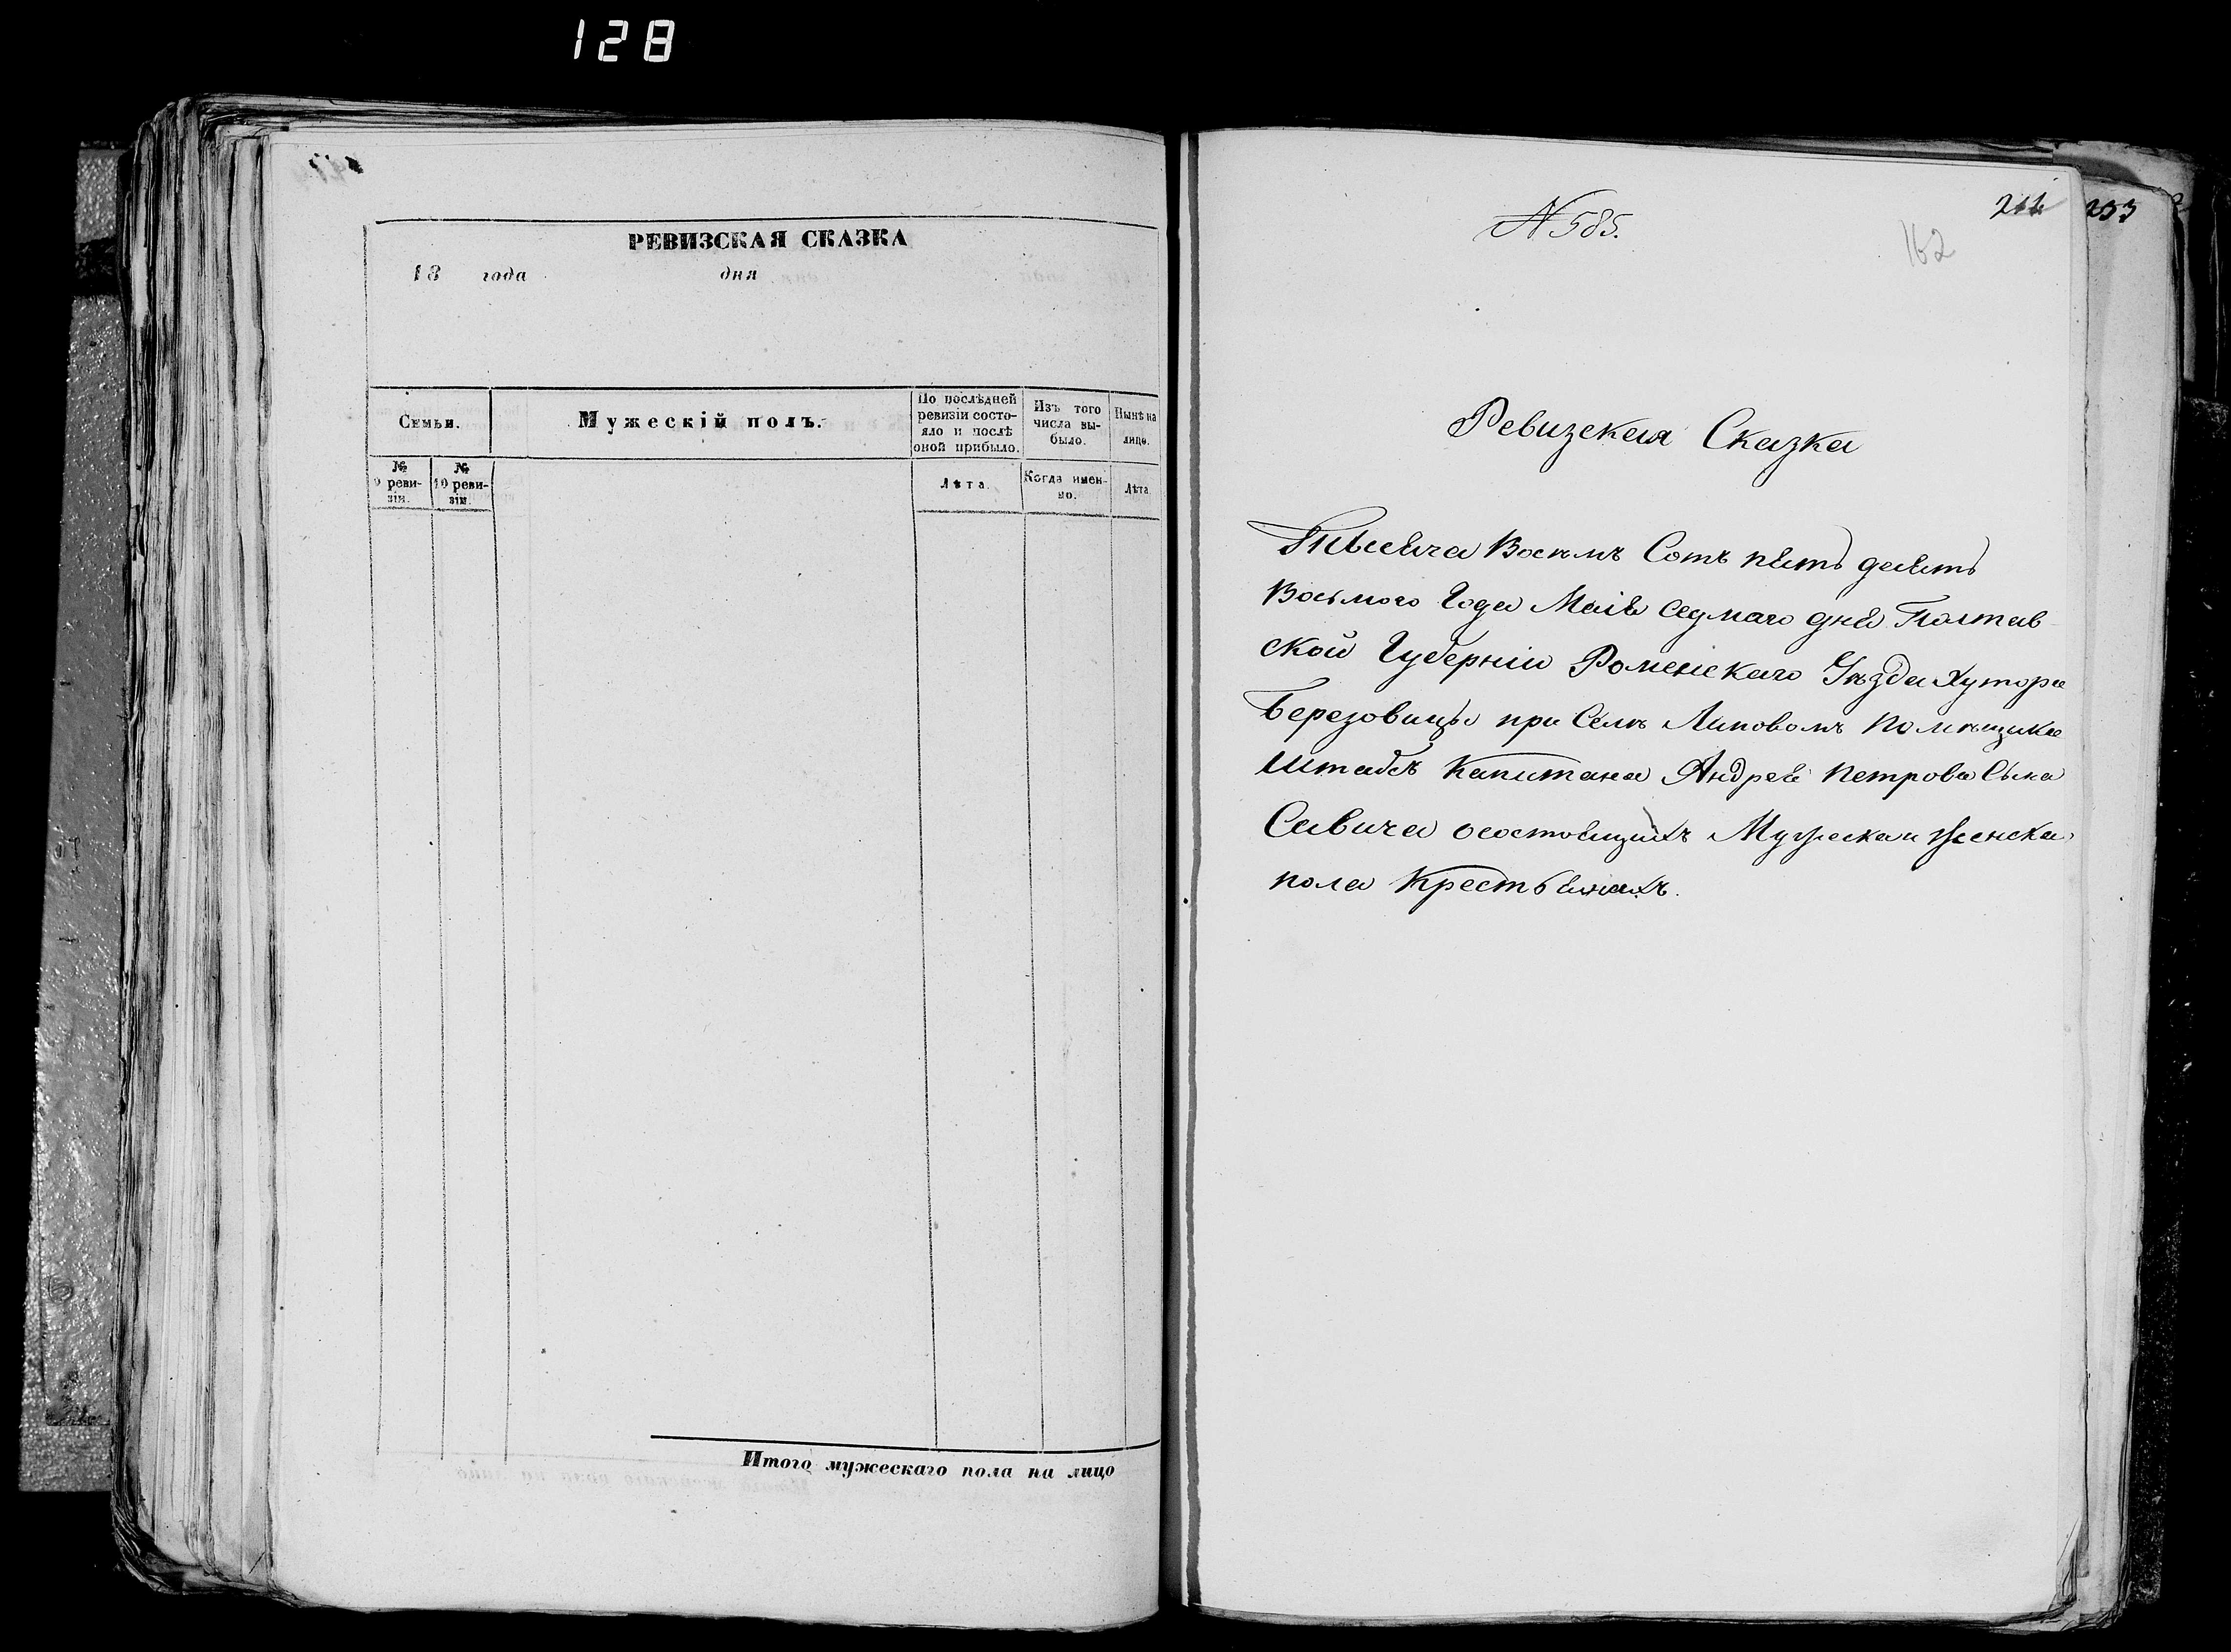 128
РЕВИЗСКАЯ СКАЗКА
18 года дня
Семьи.
Мужескій полъ.
По послѣдней
ревизіи состо-
яло и послѣ
оной прибыло.
Изъ того
числа вы-
было.
Нынѣ на
лице.
№
9 реви-
зіи.
№
10 реви-
зіи.
Лѣта.
Когда имен-
но.
Лѣта.
Итого мужескаго пола на лицо
N 585.
162
233
Ревизская Сказка
Тысяча Восемъ Сотъ пять десятъ
Восьмого Года Маія седмаго дня Полтав-
ской Губерніи Роменскаго Уѣзда Хутора
Березовицы при Селѣ Липовомъ помѣщика
Штабсъ Капитана Андрея Петрова Сына
Савича осостоящихъ Мужеска и женска
пола Крестьянахъ.